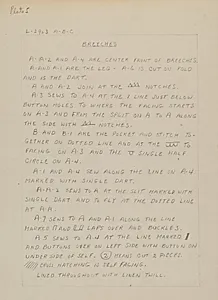 Plate I
L-2463 A-B-C
BREECHES
A-A-2 AND A-4 ARE CENTER FRONT OF BREECHES
A AND A-1 ARE THE LEG - A-2 IS CUT ON FOLD
AND IS THE DART.
A AND A-2 JOIN AT THE NOTCHES.
A-3 SEWS TO A-4 AT THE LINE JUST BELOW
BUTTON HOLES TO WHERE THE FACING STARTS
ON A-3 AND FROM THE SPLIT ON A TO A ALONG
THE SIDE WITH NOTCHES.
B AND B-1 ARE THE POCKET AND STITCH TO-
GETHER ON DOTTED LINE AND AT THE TO
FACING ON A-3 AND THE SINGLE HALF
CIRCLE ON A-4.
A-1 AND A-4 SEW ALONG THE LINE ON A-4
MARKED WITH SINGLE DART.
A-A-2 SEWS TO A AT THE SLIT MARKED WITH
SINGLE DART AND TO FLY AT THE DOTTED LINE
AT A-4.
A-5 SEWS TO A AND A-1 ALONG THE LINE
MARKED AND LAPS OVER AND BUCKLES.
A-5 SEWS TO A-4 AT THE LINE MARKED
AND BUTTONS SEEN ON LEFT SIDE WITH BUTTON ON
UNDER SIDE OF SELF. (2) MEANS CUT 2 PIECES
CROSS HATCHING IS SELF FACING.
LINED THROUGHOUT WITH LINEN TWILL.